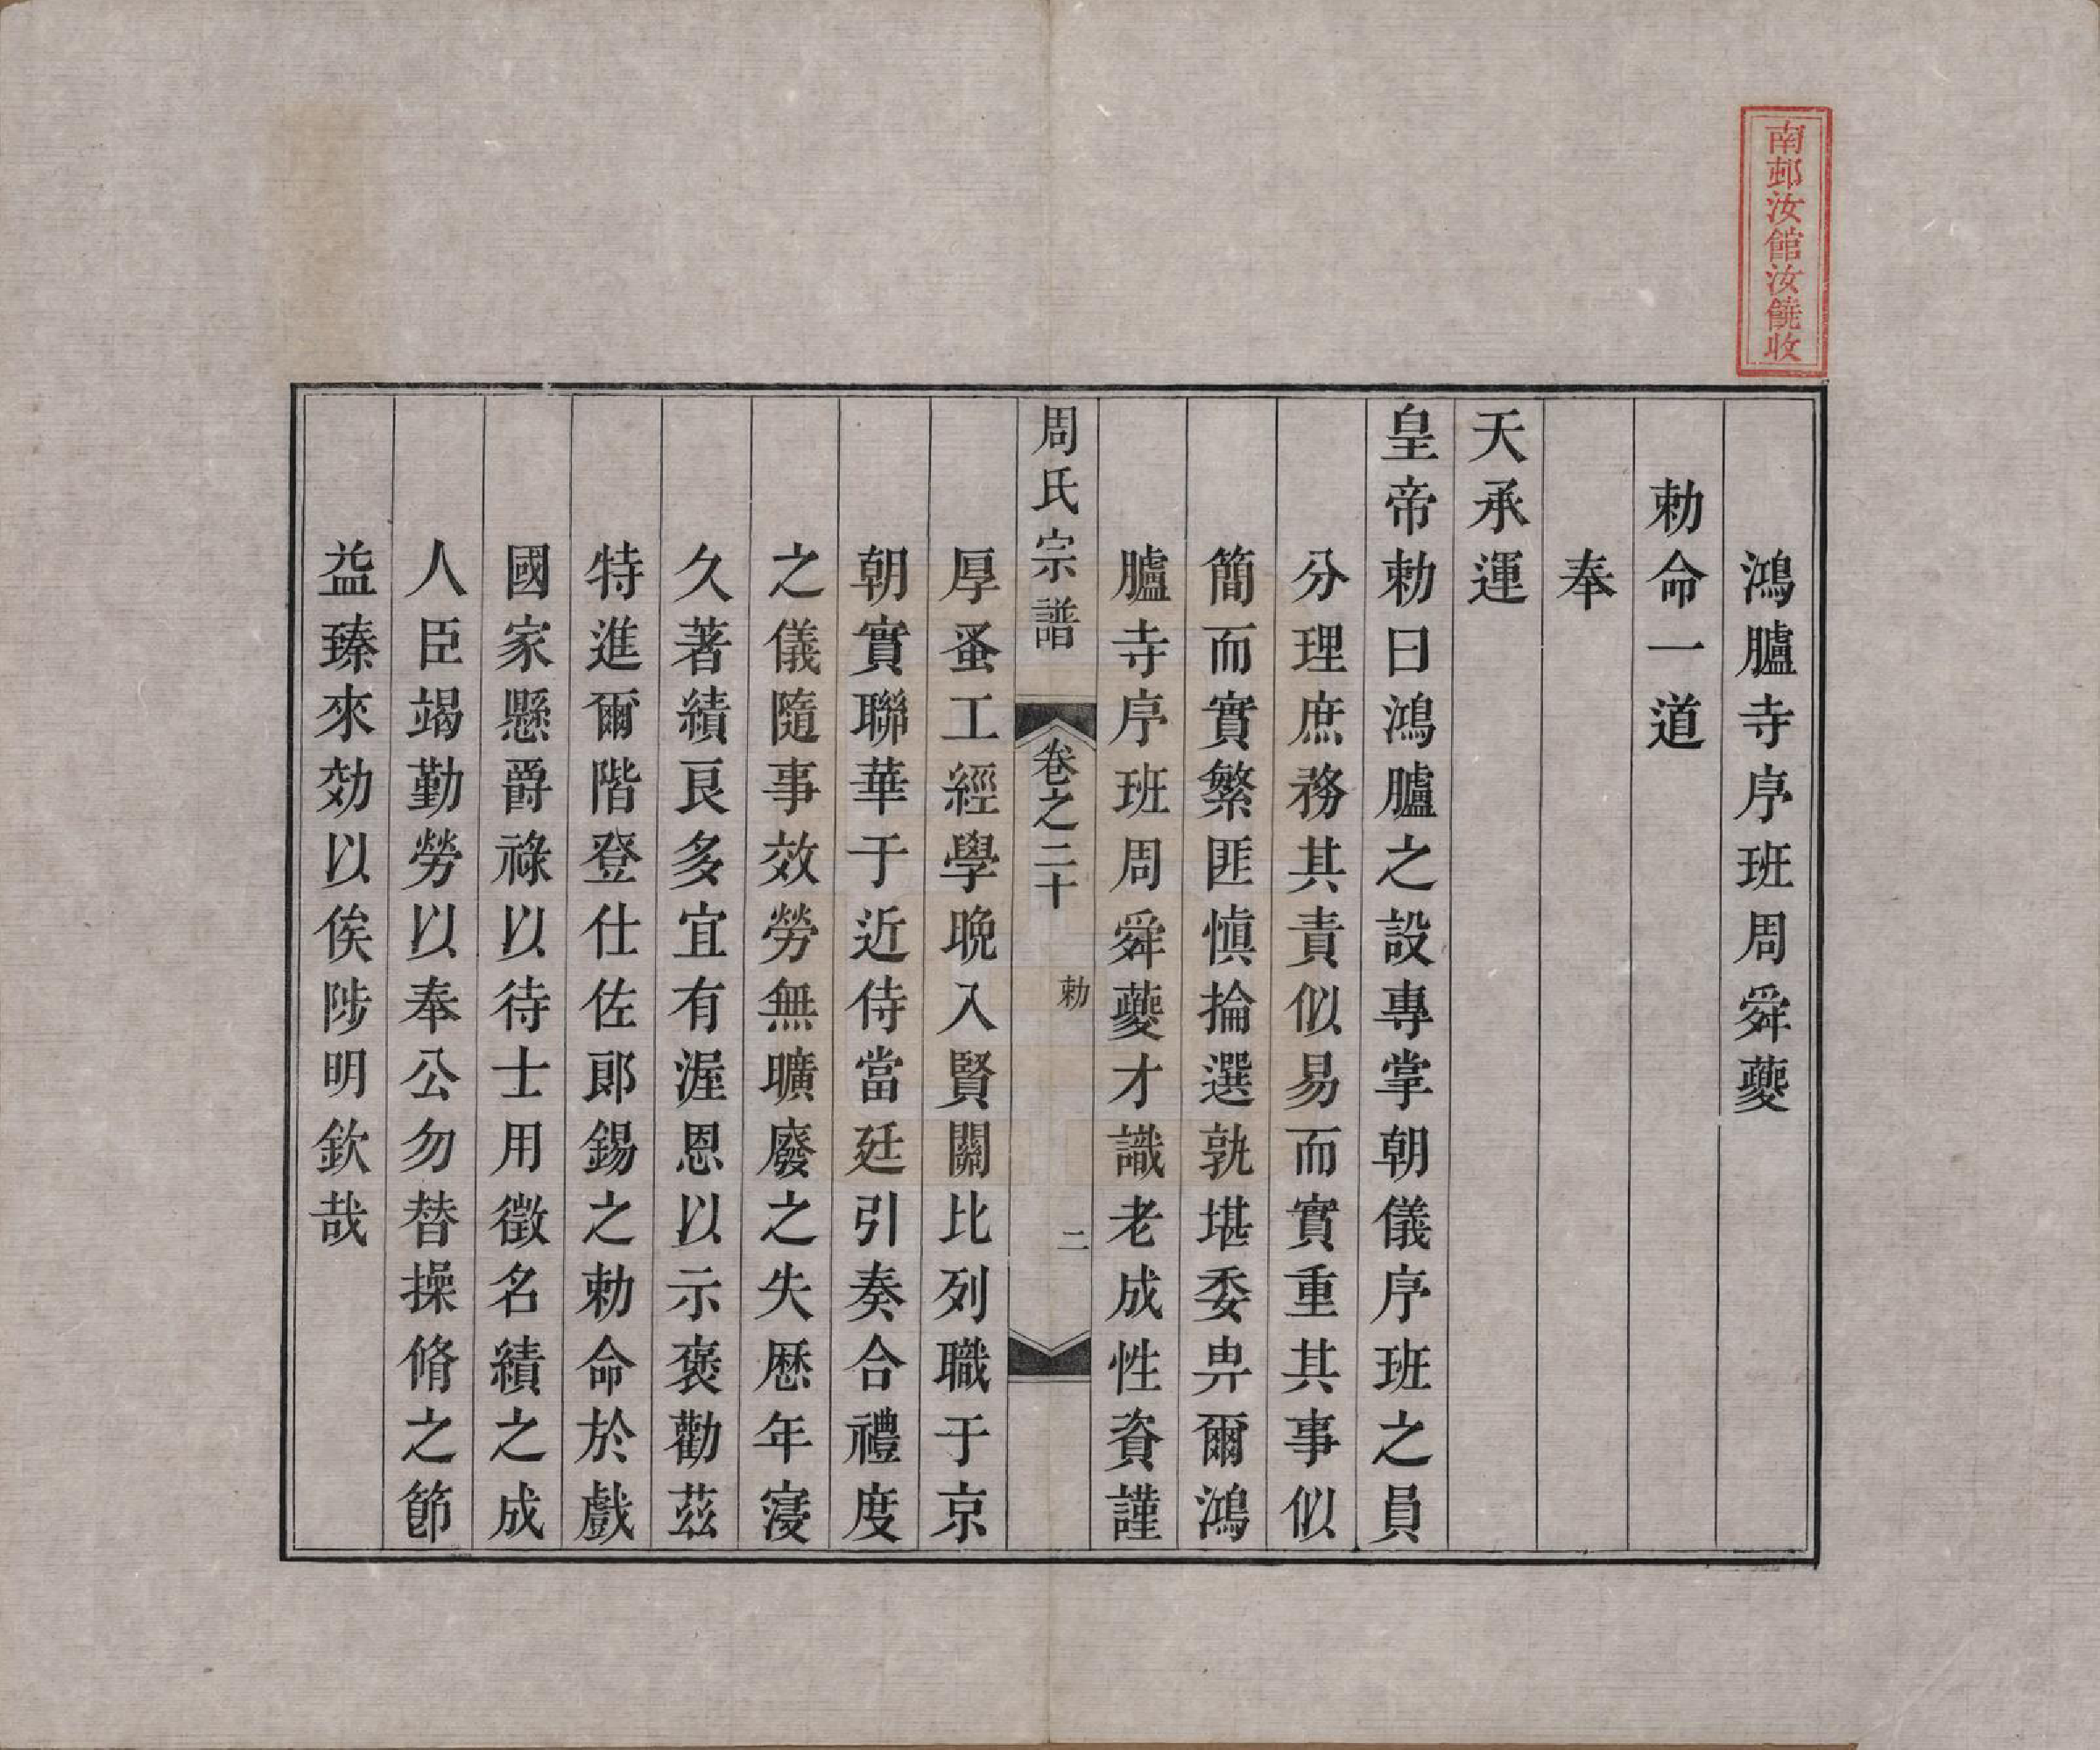 南邨汝館汝饒收
鴻臚寺序班周舜夔
勅命一道
奉
天承運
皇帝勅曰鴻臚之設專掌朝儀序班之員
分理庶務其責似易而實重其事似
簡而實繁匪慎掄選孰堪委畀爾鴻
臚寺序班周舜夔才識老成性資謹
周氏宗譜 卷之二十 勅 二
厚蚤工經學晚入賢關比列職于京
朝實聯華于近侍當廷引奏合禮度
之儀隨事效勞無曠廢之失歷年寖
久著績良多宜有渥恩以示褒勸茲
特進爾階登仕佐郎錫之勅命於戲
國家懸爵祿以待士用徵名績之成
人臣竭勤勞以奉公勿替操脩之節
益臻來効以俟陟明欽哉